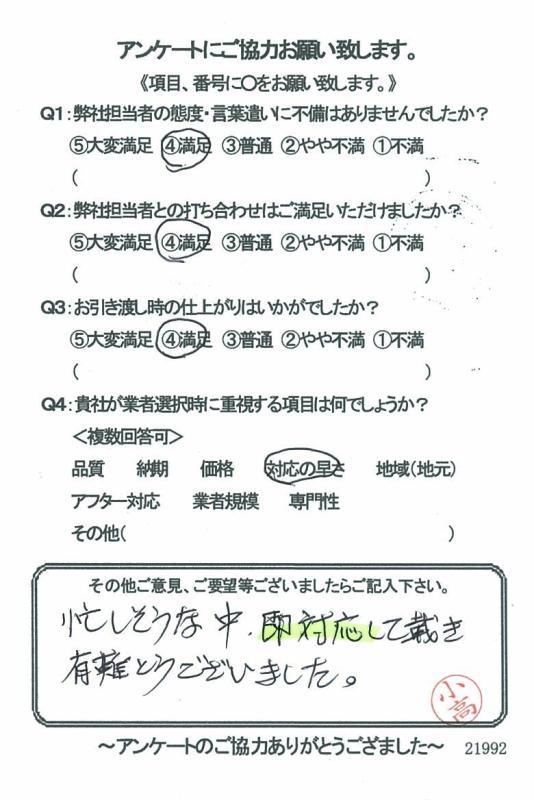 アンケートにご協力お願い致します。
《項目、番号に○をお願い致します。》
Q1:弊社担当者の態度・言葉遣いに不備はありませんでしたか?
⑤大変満足 ④満足 ③普通 ②やや不満 ①不満
( )
Q2:弊社担当者との打ち合わせはご満足いただけましたか?
⑤大変満足 ④満足 ③普通 ②やや不満 ①不満
( )
Q3:お引き渡し時の仕上がりはいかがでしたか?
⑤大変満足 ④満足 ③普通 ②やや不満 ①不満
( )
Q4:貴社が業者選択時に重視する項目は何でしょうか?
<複数回答可>
品質 納期 価格 対応の早さ 地域(地元)
アフター対応 業者規模 専門性
その他( )
その他ご意見、ご要望等ございましたらご記入下さい。
忙しそうな中、即対応して裁き
有難とうございました。
小高
~アンケートのご協力ありがとうござました~ 21992